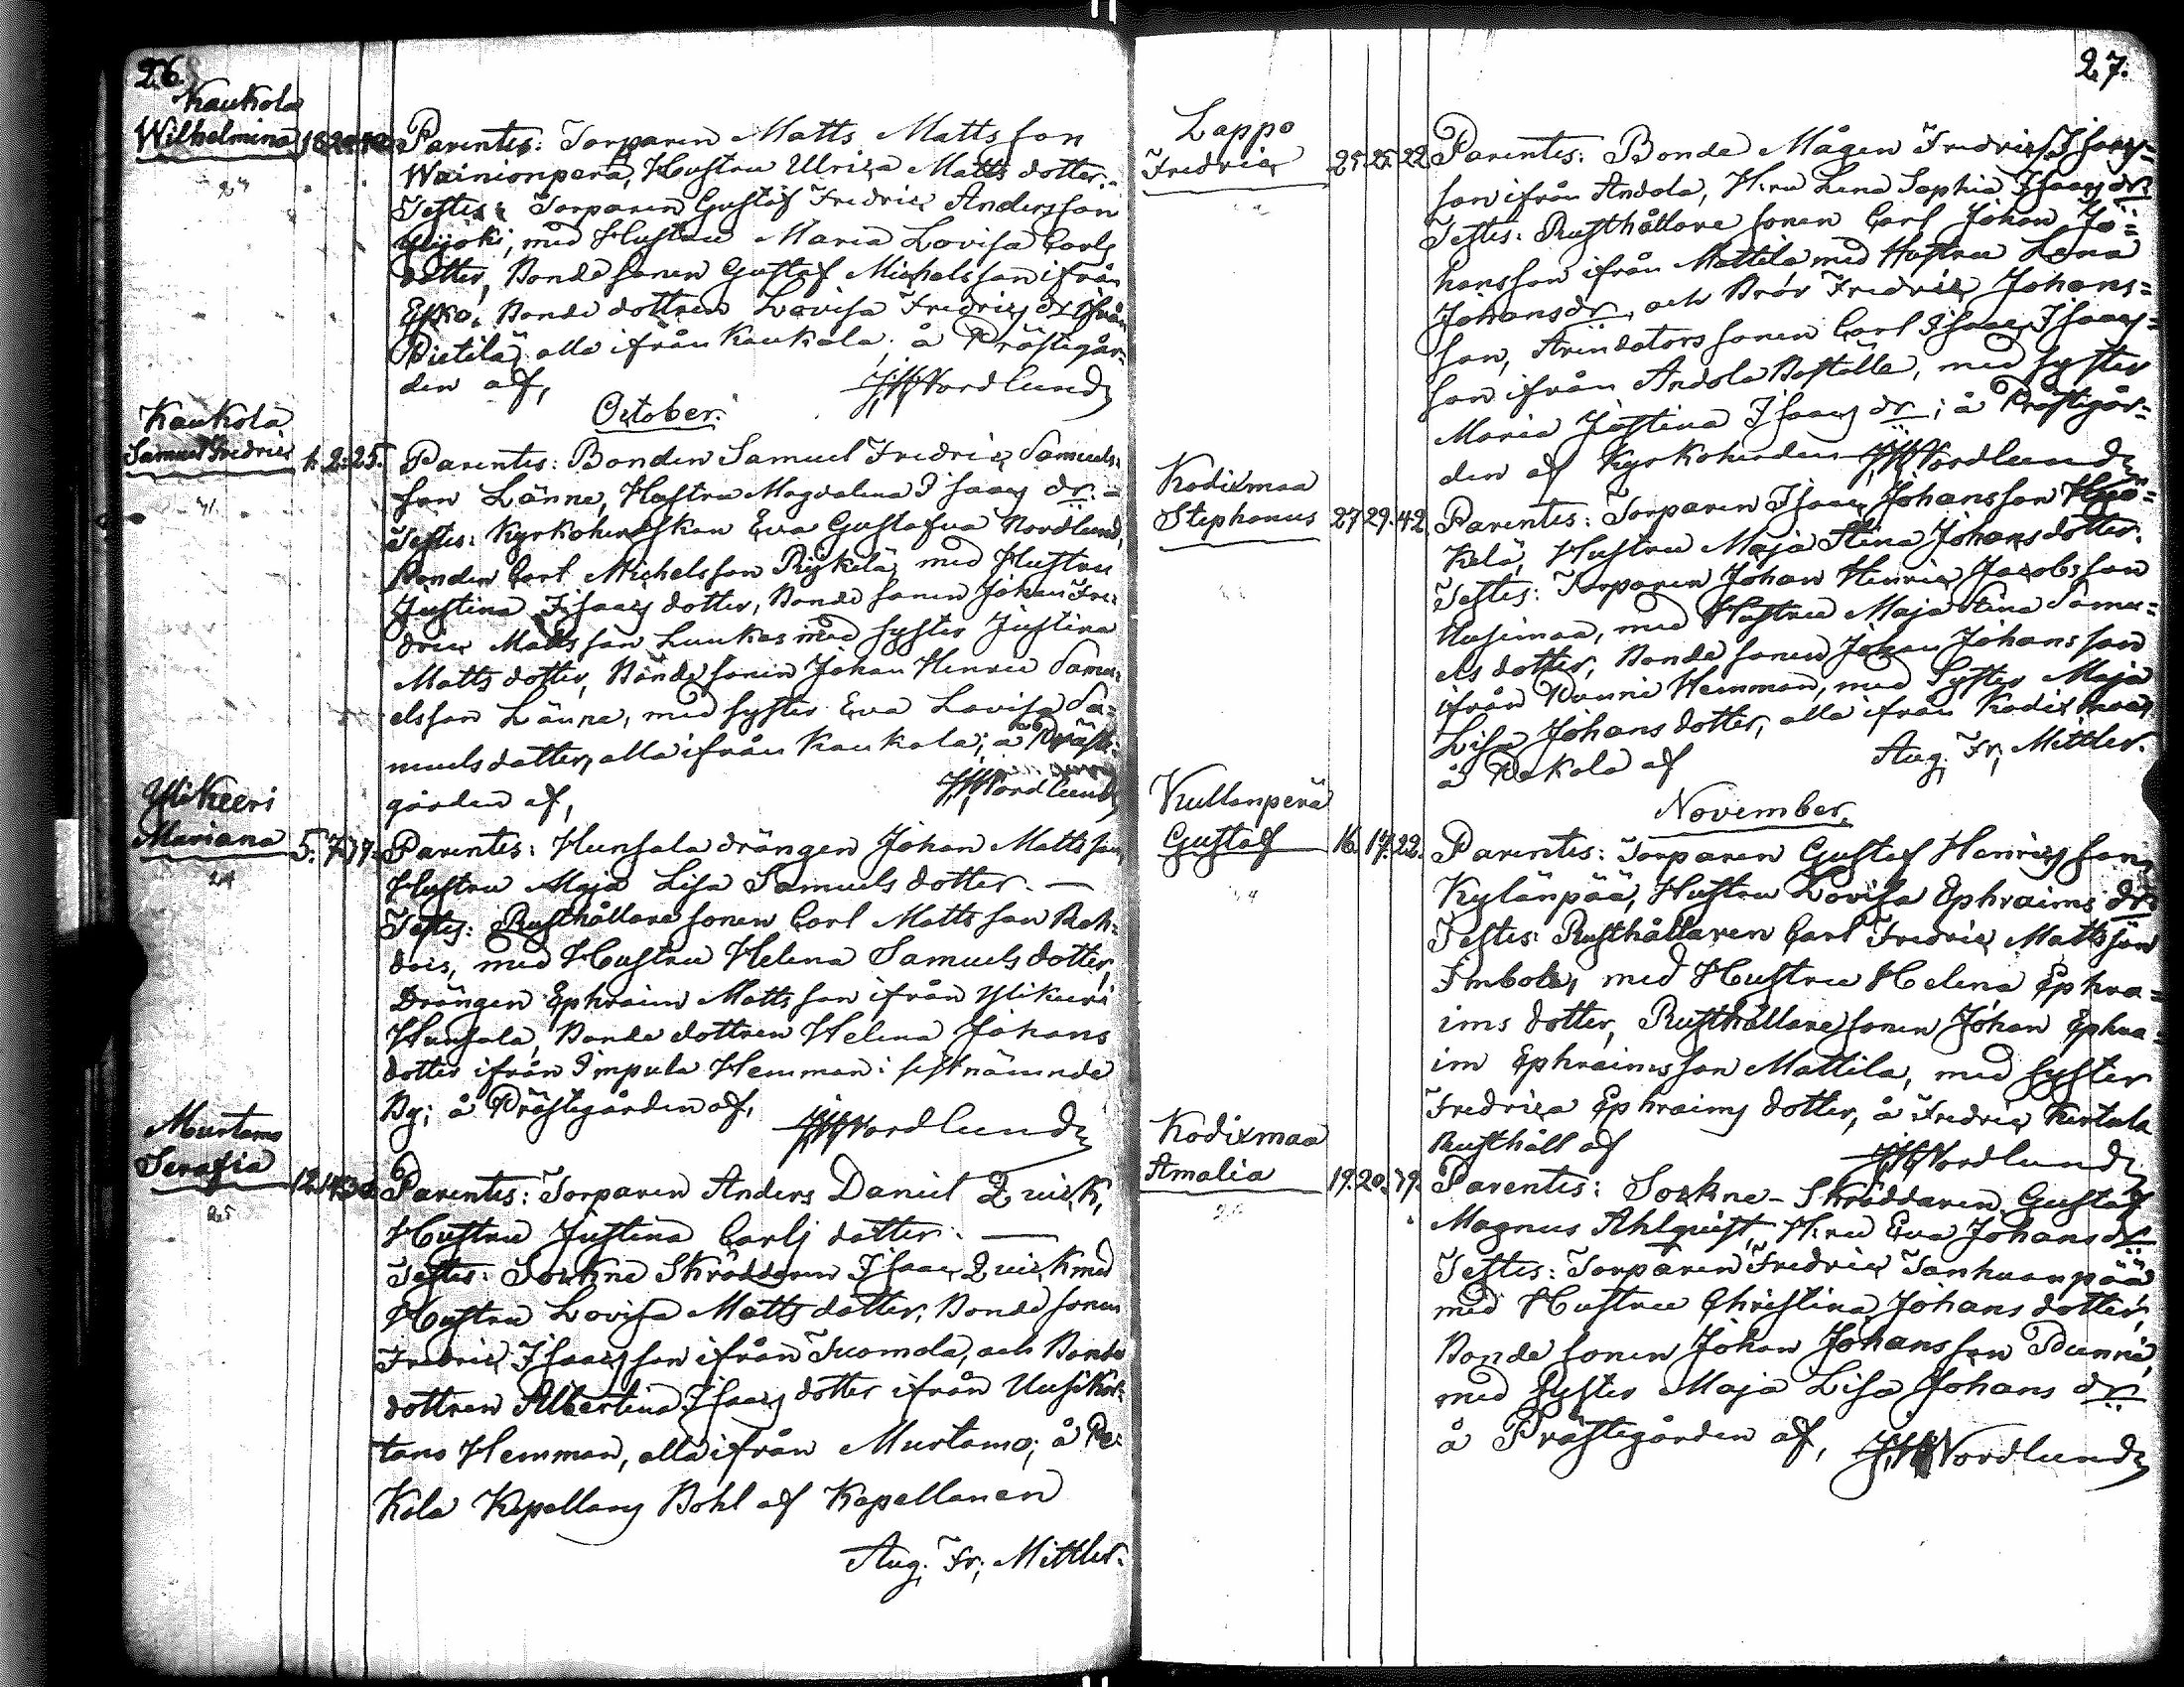 26.
Kaukola
Wilhelmina
Parentes: Torparen Matts Mattsson
Wainionperä, Hustru Ulrica Matts dotter.
Testes: Torparen Gustaf Fredric Andersson
Ylijoki, med Hustru Maria Lovisa Carls
dotter, Bonde sonen Gustaf Michelsson ifrån
Esko, Bonde dottren Lovisa Fredrics dr ifrån
Pietilä, alla ifrån Kaukola; å Prästegår-
den af, Nordlund
October.
Kaukola
Samuel Fredric 1. 2. 25.
Parentes: Bonden Samuel Fredric Samuels-
son Länne, Hustru Magdalena Isaacs dr.
Testes: Kyrkoherdskan Eva Gustafva Nordlund,
Bonden Carl Michelsson Ryskelä med Hustru
Justina Isaacs dotter, Bonde sonen Johan Fre-
dric Mattsson Luukas med syster Justina
Matts dotter, Bonde sonen Johan Henric Samu-
elsson Länne, med syster Eva Lovisa Sa-
muelsdotter, alla ifrån Kaukola; å Präste-
gården af, Nordlund
Ylikeeri
Mariana 5. 7.
Parentes: Hunsala drängen Johan Mattsson
Hustru Maja Lisa Samuels dotter. —
Testes: Rusthållare sonen Carl Mattsson Roh-
dois, med Hustru Helena Samuels dotter,
Drängen Ephraim Mattsson ifrån Ylikeeri
Hunsala, Bonde dottren Helena Johans
dotter ifrån Impula Hemman i sistnämnde
By; å Prästegården af, Nordlund
Murtamo
Serafia
Parentes: Torparen Anders Daniel Quick,
Hustru Justina Carls dotter. —
Testes: Sockne Skräddaren Isaac Quick med
Hustru Lovisa Matts dotter, Bonde sonen
Fredric Isaacsson ifrån Tuomola, och Bonde
dottren Albertina Isaacs dotter ifrån Uusikar-
tano Hemman, alla ifrån Murtamo; å Pa-
kola Kapellans Bohl af Kapellanen
Aug. Fr. Mittler.
27.
Lappo
Fredrica 25. 25. 22.
Parentes: Bonde Mågen Fredric Isaacs-
son ifrån Andola, H:ru Lena Sophia Isaacs dr
Testes: Rusthållare sonen Carl Johan Jo-
hansson ifrån Mattila med Hustru Lena
Johans dr, och Bror Fredric Johans-
son, Arrendators sonen Carl Isaac Isaacs-
son ifrån Andola Boställe, med syster
Maria Justina Isaacs dr; å Prästegår-
den af Kyrkoherden Nordlund
Kodixmaa
Stephanus 27. 29. 42.
Parentes: Torparen Isaac Johansson
kelä, Hustru Maja Stina Johans dotter.
Testes: Torparen Johan Henric Jacobsson
Uusimaa, med Hustru Maja Stina Samu-
els dotter, Bonde sonen Johan Johansson
ifrån Punni Hemman, med Syster Maja
Lisa Johans dotter, alla ifrån Kodixmaa,
å Pakola af Aug. Fr. Mittler.
November.
Kullanperä
Gustaf 16. 17. 22.
Parentes: Torparen Gustaf Henricsson
Kylänpää, Hustru Lovisa Ephraims dr
Testes: Rusthållaren Carl Fredric Mattsson
Imbola, med Hustru Helena Ephra-
ims dotter, Rusthållare sonen Johan Ephra-
im Ephraimsson Mattila, med syster
Fredrica Ephraims dotter, å Fredric Kertala
Rusthåll af Nordlund
Kodixmaa
Amalia 19. 20. 39.
Parentes: Sockne-Skräddaren Gustaf
Magnus Ahlquist, H:ru Eva Johans dr
Testes: Torparen Fredric Tanhuanpää
med Hustru Christina Johans dotter,
Bonde sonen Johan Johansson Punni,
med syster Maja Lisa Johans dr;
å Prästegården af, Nordlund